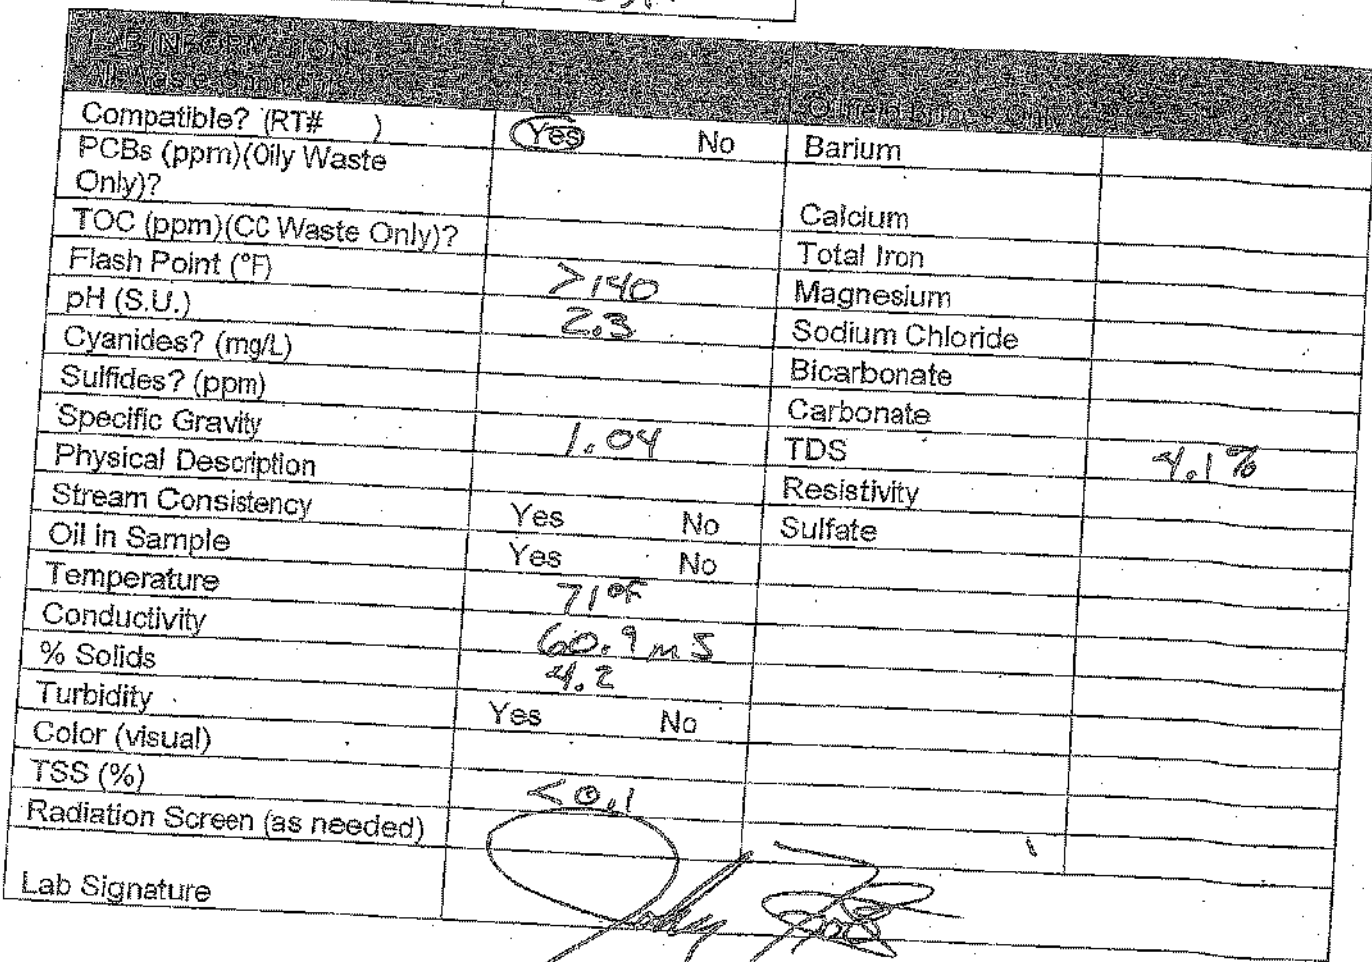 LAB INFORMATION
All Waste Streams
Oilfield Brines Only
Compatible? (RT# ) Yes No Barium
PCBs (ppm)(Oily Waste
Only)?
Calcium
TOC (ppm)(CC Waste Only)? Total Iron
Flash Point (°F) >140 Magnesium
pH (S.U.) 2.3 Sodium Chloride
Cyanides? (mg/L) Bicarbonate
Sulfides? (ppm) Carbonate
Specific Gravity 1.04 TDS 4.1%
Physical Description Resistivity
Stream Consistency Yes No Sulfate
Oil in Sample Yes No
Temperature 71°F
Conductivity 60.9 mS
% Solids 4.2
Turbidity Yes No
Color (visual)
TSS (%) <0.1
Radiation Screen (as needed)
Lab Signature